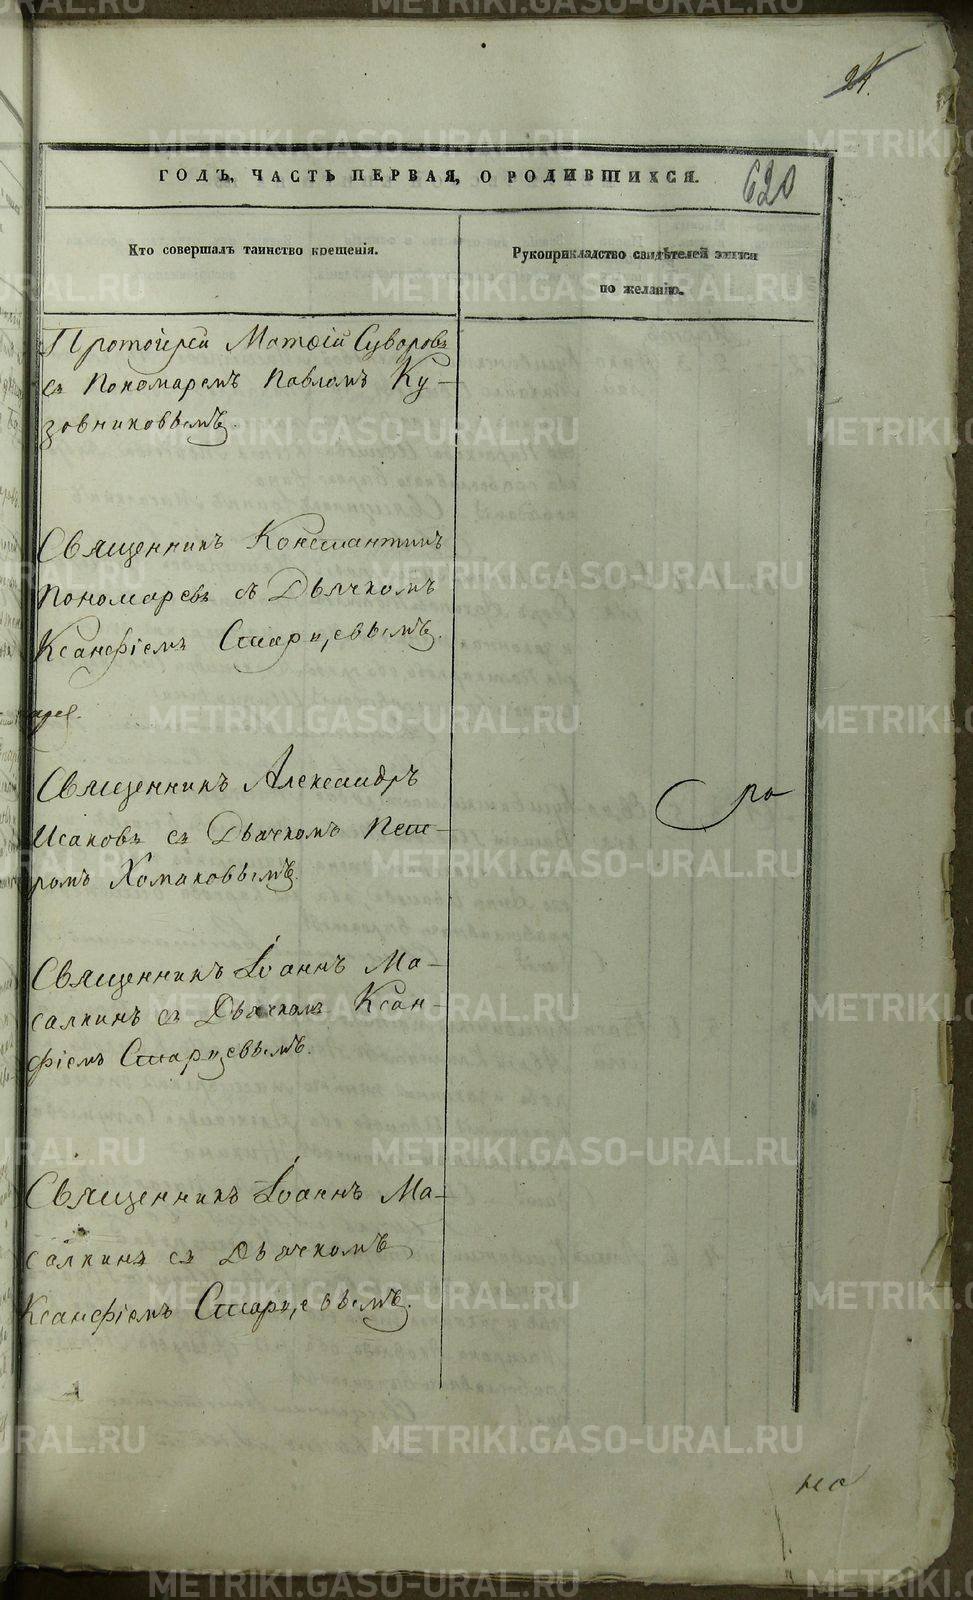 24.
ГОДЪ, ЧАСТЬ ПЕРВАЯ, О РОДИВШИХСЯ.
620
Кто совершалъ таинство крещенія.
Рукоприкладство свидѣтелей записи
по желанію.
Протоіерей Матѳій Суворовъ
съ Пономаремъ Павломъ Ку-
зовниковымъ.
Священникъ Константинъ
Пономаревъ съ Дьячкомъ
Ксанфіемъ Старцевымъ.
Священникъ Александръ
Исаковъ съ Дьячкомъ Пет-
ромъ Хомаковымъ.
по
Священникъ Іоаннъ Ма-
салкинъ съ Дьячкомъ Ксан-
фіемъ Старцевымъ.
Священникъ Іоаннъ Ма-
салкинъ съ Дьячкомъ
Ксанфіемъ Старцевымъ.
METRIKI.GASO-URAL.RU